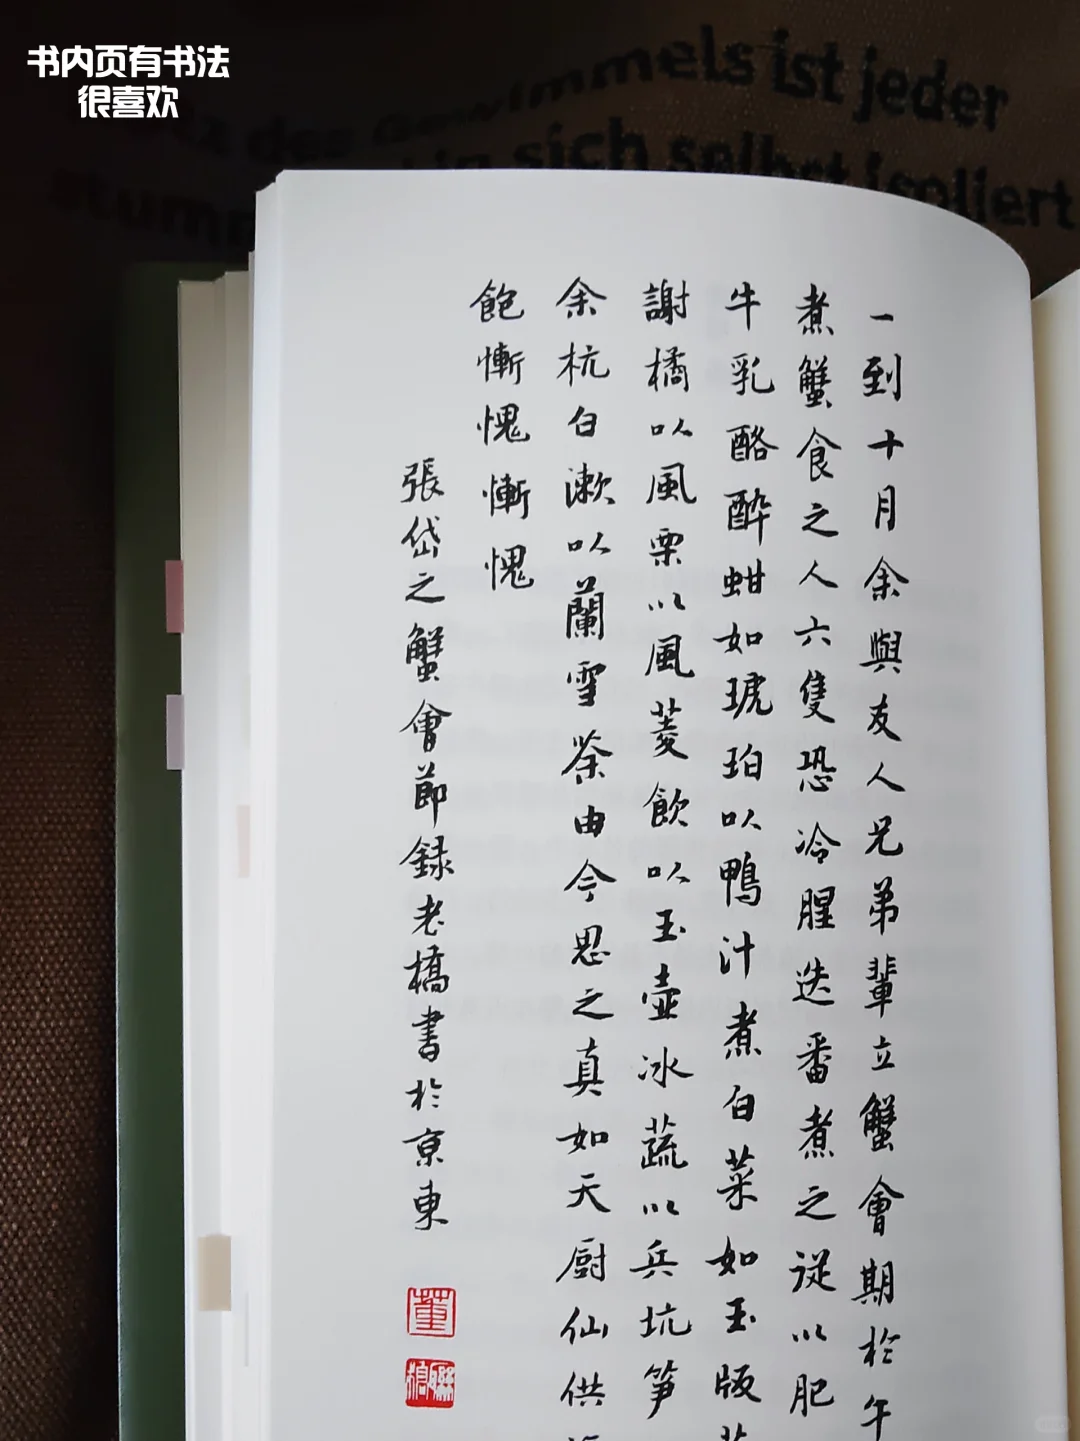 书内页有书法
很喜欢
des Gewimmels ist jeder
stumm in sich selbst isoliert
一到十月余與友人兄弟輩立蟹會期於午
煮蟹食之人六隻恐冷腥迭番煮之從以肥
牛乳酪醉蚶如琥珀以鴨汁煮白菜如玉版
謝橘以風栗以風菱飲以玉壺冰蔬以兵坑笋
余杭白漱以蘭雪茶由今思之真如天厨仙供
飽慚愧慚愧
張岱之蟹會節録老橋書於京東
董